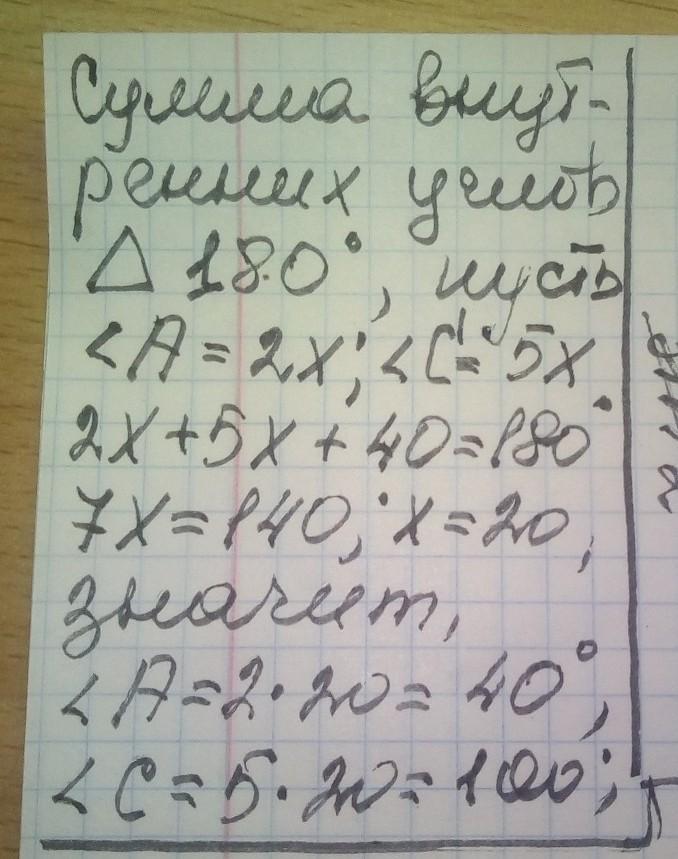 Сумма внут-
ренних углов
△ 180°, пусть
<A = 2x; <C = 5x
2x + 5x + 40 = 180°
7x = 140; x = 20,
значит,
<A = 2·20 = 40°,
<C = 5·20 = 100°;